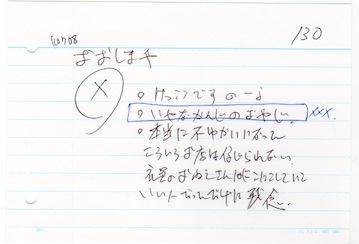 130
おおしま
X
○ けっこうですのーよ
○ いやなかんじのおやじ。 xxx.
○ 本当に不ゆかいになって
こういうお店は信じられない。
のおねえさんはにこにこしていて
いい人だっただけに残念.